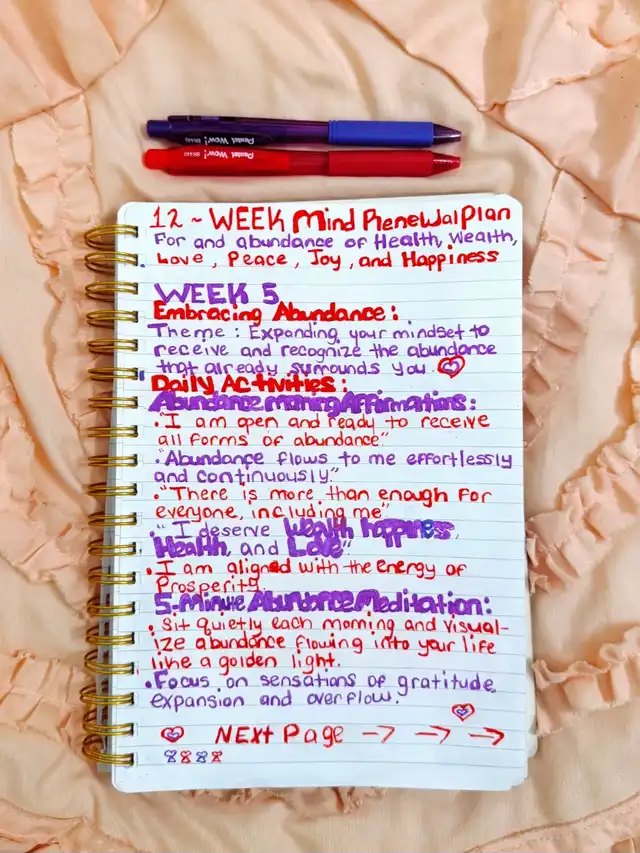 Pentel Wow! BK440
Pentel Wow! BK440
12 ~ WEEK Mind Renewal Plan
For and abundance of Health, Wealth,
Love, Peace, Joy, and Happiness
WEEK 5
Embracing Abundance:
Theme: Expanding your mindset to
receive and recognize the abundance
that already surrounds you.
Daily Activities:
Abundance morning Affirmations:
• "I am open and ready to receive
all forms of abundance"
• "Abundance flows to me effortlessly
and continuously."
• "There is more than enough for
everyone, including me"
• "I deserve Wealth, happiness,
Health, and Love"
• I am aligned with the energy of
Prosperity
5-Minute Abundance Meditation:
• Sit quietly each morning and visual-
ize abundance flowing into your life
like a golden light.
• Focus on sensations of gratitude,
expansion and overflow.
NEXT Page → → →